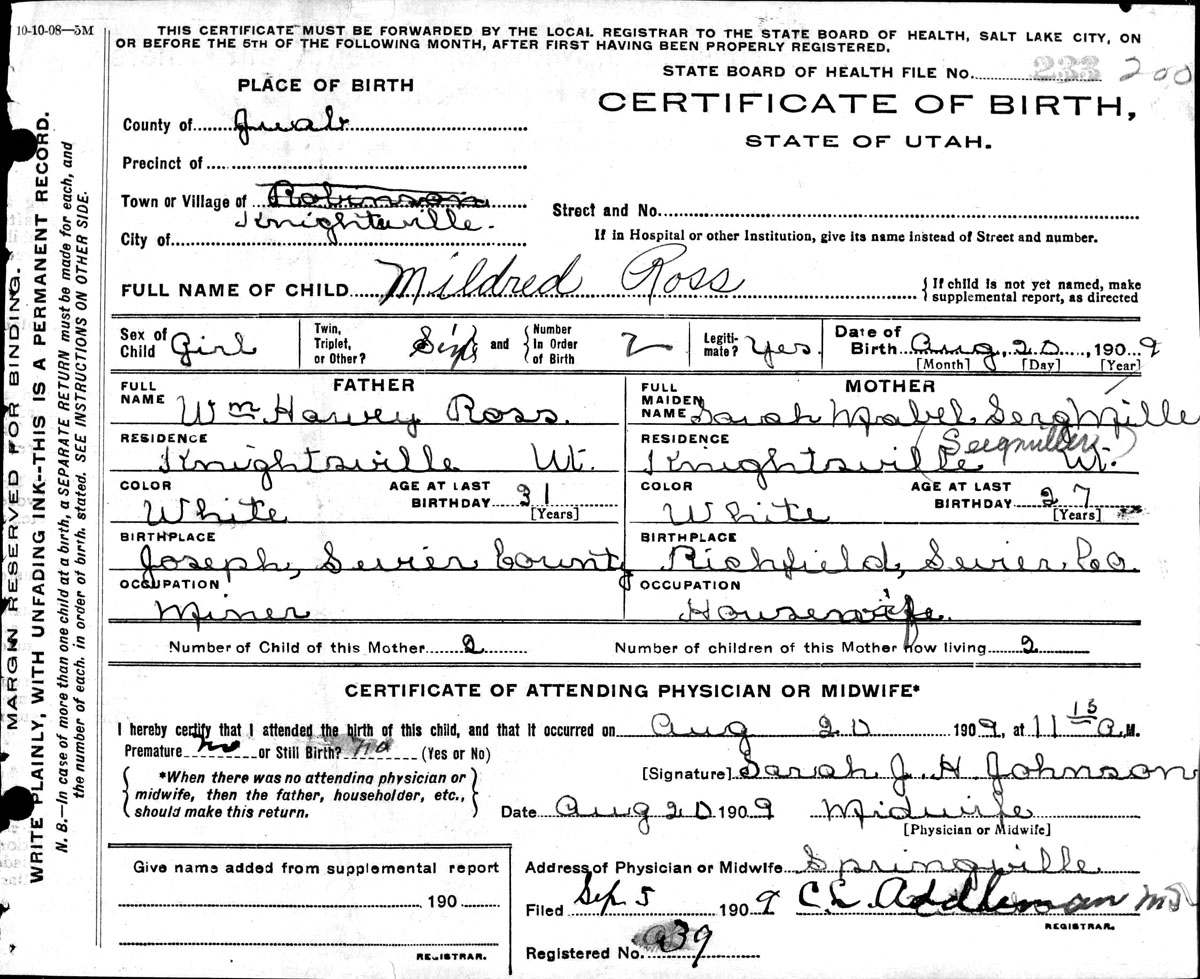 10-10-08—5M
THIS CERTIFICATE MUST BE FORWARDED BY THE LOCAL REGISTRAR TO THE STATE BOARD OF HEALTH, SALT LAKE CITY, ON
OR BEFORE THE 5TH OF THE FOLLOWING MONTH, AFTER FIRST HAVING BEEN PROPERLY REGISTERED.
STATE BOARD OF HEALTH FILE No. 233 200
PLACE OF BIRTH
CERTIFICATE OF BIRTH,
STATE OF UTAH.
County of Juab
Precinct of
Town or Village of Robinson
Knightsville.
City of
Street and No.
If in Hospital or other Institution, give its name instead of Street and number.
FULL NAME OF CHILD Mildred Ross
{ If child is not yet named, make
supplemental report, as directed
Sex of Child Girl
Twin, Triplet, or Other? Single and { Number In Order of Birth 2
Legiti-mate? Yes.
Date of Birth Aug, 20, 1909
[Month] [Day] [Year]
FATHER
FULL NAME Wm Harvey Ross.
RESIDENCE Knightsville Ut.
COLOR White
AGE AT LAST BIRTHDAY 31 [Years]
BIRTHPLACE Joseph, Sevier County
OCCUPATION Miner
MOTHER
FULL MAIDEN NAME Sarah Mabel Sergmille
(Seegmiller)
RESIDENCE Knightsville Ut.
COLOR White
AGE AT LAST BIRTHDAY 27 [Years]
BIRTHPLACE Richfield, Sevier Co
OCCUPATION Housewife.
Number of Child of this Mother 2
Number of children of this Mother now living 2
CERTIFICATE OF ATTENDING PHYSICIAN OR MIDWIFE*
I hereby certify that I attended the birth of this child, and that it occurred on Aug 20 1909, at 11 15 A.M.
Premature no or Still Birth? no (Yes or No)
{ *When there was no attending physician or
midwife, then the father, householder, etc.,
should make this return. }
[Signature] Sarah J. H Johnson
Date Aug 20 1909 Midwife
[Physician or Midwife]
Give name added from supplemental report
190
REGISTRAR.
Address of Physician or Midwife Springville
Filed Sep. 5 1909 C. E. Addleman M.D
REGISTRAR.
Registered No. 939
MARGIN RESERVED FOR BINDING.
WRITE PLAINLY, WITH UNFADING INK--THIS IS A PERMANENT RECORD.
N. B.—In case of more than one child at a birth, a SEPARATE RETURN must be made for each, and
the number of each, in order of birth, stated. SEE INSTRUCTIONS ON OTHER SIDE.